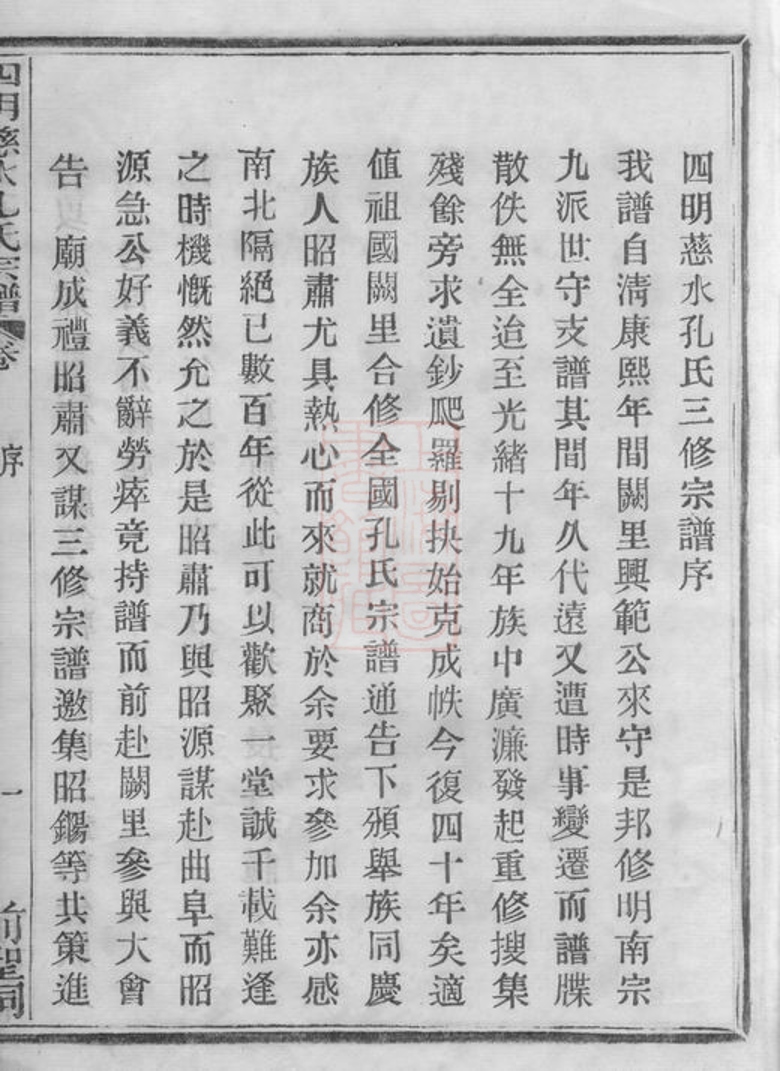 四明慈水孔氏三修宗譜序
我譜自清康熙年間闕里興範公來守是邦修明南宗
九派世守支譜其間年久代遠又遭時事變遷而譜牒
散佚無全迨至光緒十九年族中廣濂發起重修搜集
殘餘旁求遺鈔爬羅剔抉始克成帙今復四十年矣適
值祖國闕里合修全國孔氏宗譜通告下頒舉族同慶
族人昭肅尤具熱心而來就商於余要求參加余亦感
南北隔絕已數百年從此可以歡聚一堂誠千載難逢
之時機慨然允之於是昭肅乃與昭源謀赴曲阜而昭
源急公好義不辭勞瘁竟持譜而前赴闕里參與大會
告 廟成禮昭肅又謀三修宗譜邀集昭鍚等共策進
四明慈水孔氏宗譜 卷 序 一